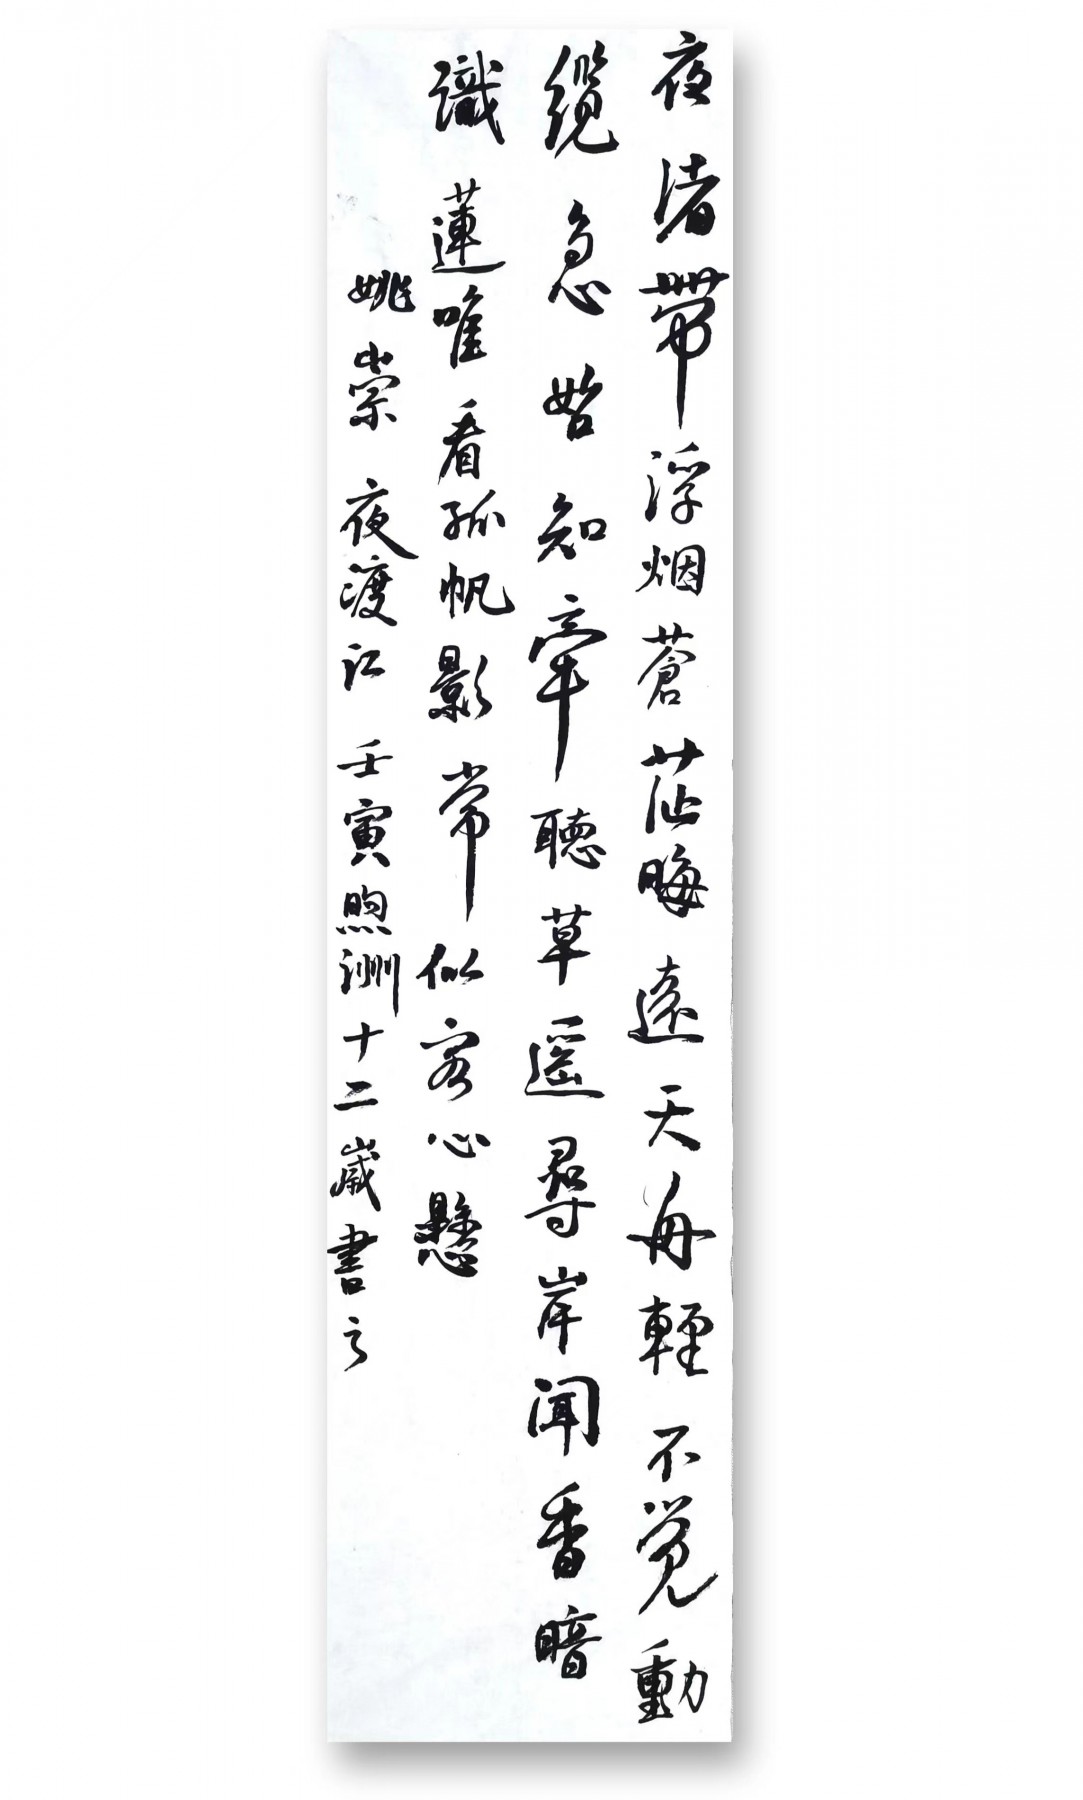 夜渚帶浮烟蒼茫晦遠天舟輕不覺動
纜急始知牽聽草遥尋岸聞香暗
識蓮唯看孤帆影常似客心懸
姚崇 夜渡江 壬寅煦洲十二歲書之